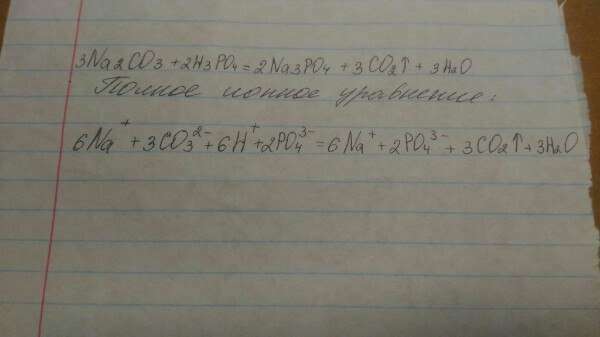 3Na2CO3 + 2H3PO4 = 2Na3PO4 + 3CO2↑ + 3H2O
Полное ионное уравнение:
6Na⁺ + 3CO3²⁻ + 6H⁺ + 2PO4³⁻ = 6Na⁺ + 2PO4³⁻ + 3CO2↑ + 3H2O